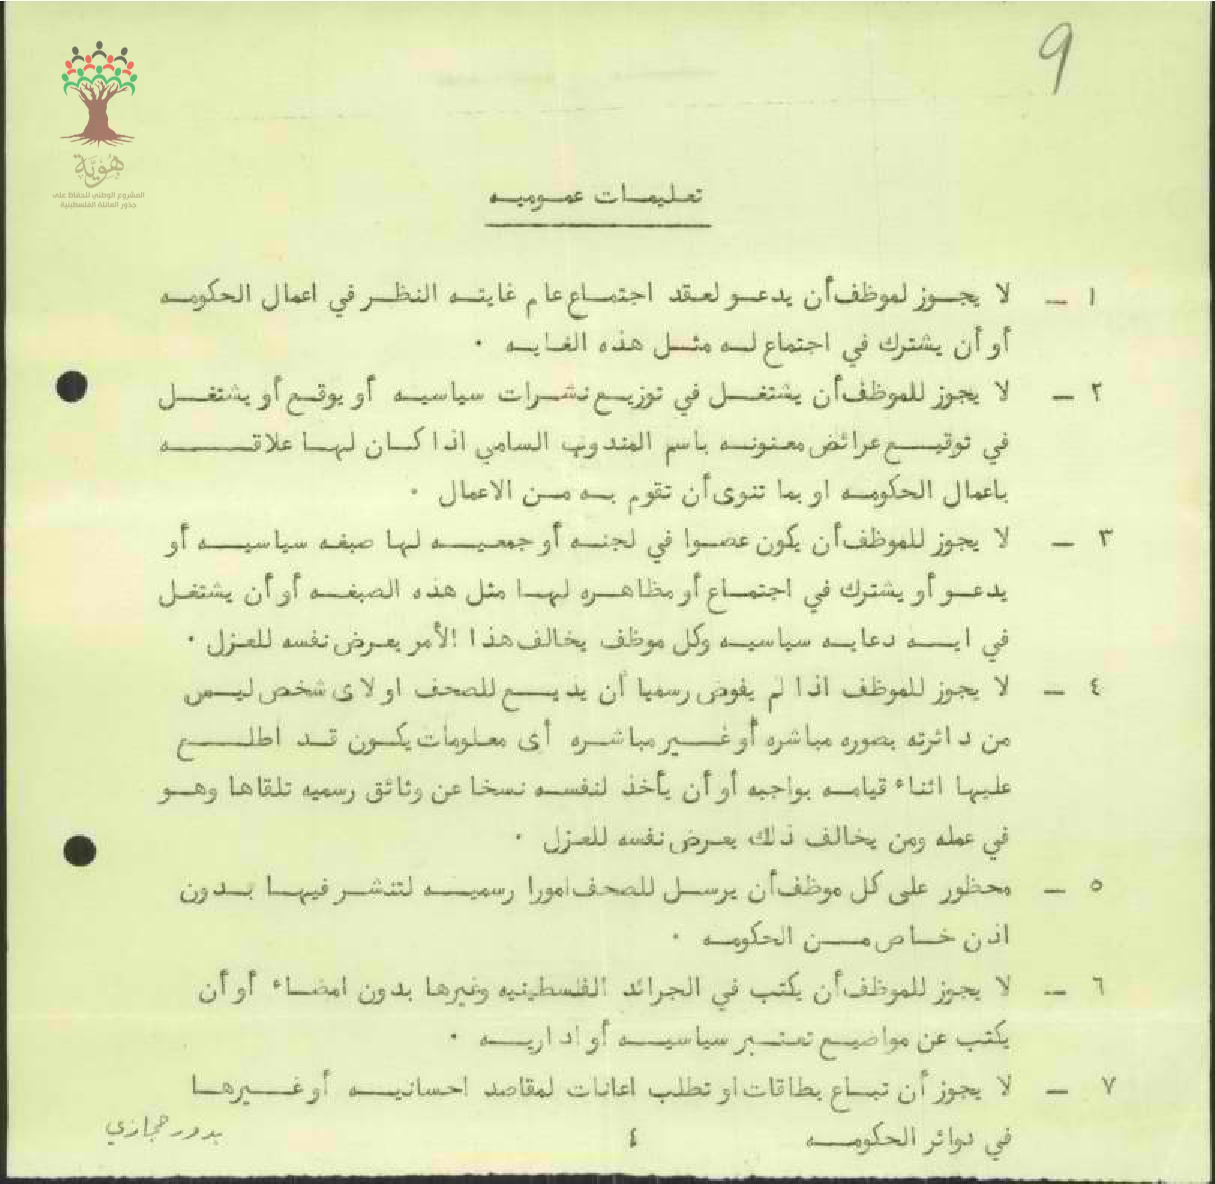 9
هُوِيَّة
المشروع الوطني للحفاظ على
جذور العائلة الفلسطينية
تعليمات عموميه
١ – لا يجوز لموظف أن يدعو لعقد اجتماع عام غايته النظر في اعمال الحكومه
أو أن يشترك في اجتماع له مثل هذه الغايه .
٢ – لا يجوز للموظف أن يشتغل في توزيع نشرات سياسيه أو يوقع أو يشتغل
في توقيع عرائض معنونه باسم المندوب السامي اذا كان لها علاقه
باعمال الحكومه او بما تنوى أن تقوم به من الاعمال .
٣ – لا يجوز للموظف أن يكون عضوا في لجنه أو جمعيه لها صبغه سياسيه أو
يدعو أو يشترك في اجتماع أو مظاهره لها مثل هذه الصبغه أو أن يشتغل
في ايه دعايه سياسيه وكل موظف يخالف هذا الأمر يعرض نفسه للعزل .
٤ – لا يجوز للموظف اذا لم يفوض رسميا أن يذيع للصحف او لاى شخص ليس
من دائرته بصوره مباشره أو غير مباشره أى معلومات يكون قد اطلع
عليها اثناء قيامه بواجبه أو أن يأخذ لنفسه نسخا عن وثائق رسميه تلقاها وهو
في عمله ومن يخالف ذلك يعرض نفسه للعزل .
٥ – محظور على كل موظف أن يرسل للصحف امورا رسميه لتنشر فيها بدون
اذن خاص من الحكومه .
٦ – لا يجوز للموظف أن يكتب في الجرائد الفلسطينيه وغيرها بدون امضاء أو أن
يكتب عن مواضيع تعتبر سياسيه أو اداريه .
٧ – لا يجوز أن تباع بطاقات او تطلب اعانات لمقاصد احسانيه أو غيرها
في دوائر الحكومه
٤
بدور حجازي